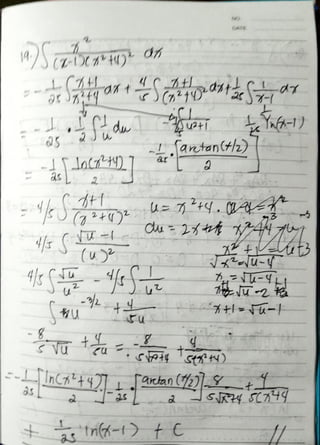 NO.
DATE
19.) ∫ x² / (x-1)(x²+4)² dx
= - 1/25 ∫ x+1 / x²+4 dx + 4/5 ∫ x+1 / (x²+4)² dx + 1/25 ∫ 1 / x-1 dx
= - 1/25 · 1/2 ∫ 1/u du   1/25 ln(x-1)
= - 1/25 [ ln(x²+4) / 2 ]   - 1/25 · [ arctan(x/2) / 2 ]
= 4/5 ∫ x+1 / (x²+4)²   u = x²+4 .
4/5 ∫ √u -1 / (u)²   du = 2x
4/5 ∫ √u / u² - 4/5 ∫ 1 / u²   √x² = √u-4
x = √u-4
∫ u^-3/2 + 4/5u   x+1 = √u -1
- 8 / 5√u + 4/5u = - 8 / 5√x²+4 + 4 / 5(x²+4)
= - 1/25 [ ln(x²+4) / 2 ] - 1/25 [ arctan(x/2) / 2 ] - 8 / 5√x²+4 + 4 / 5(x²+4
+ 1/25 ln(x-1) + C //